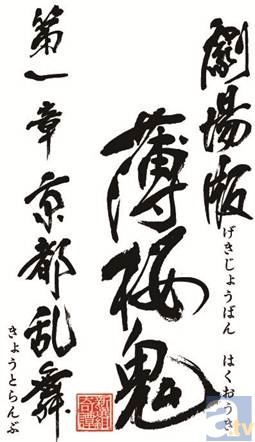 劇場版
げきじょうばん はくおうき
薄桜鬼
新選組奇譚
第一章 京都乱舞
きょうとらんぶ
a.tv